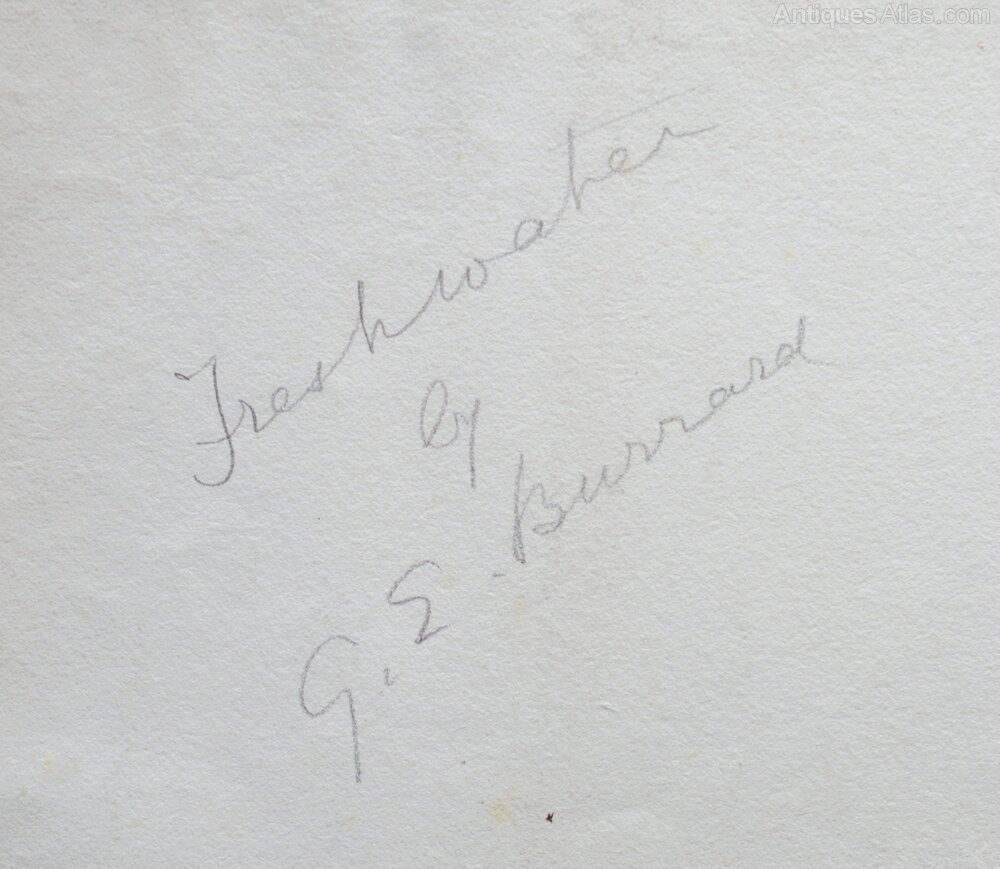 AntiquesAtlas.com
Freshwater
by
G. E. Burrard